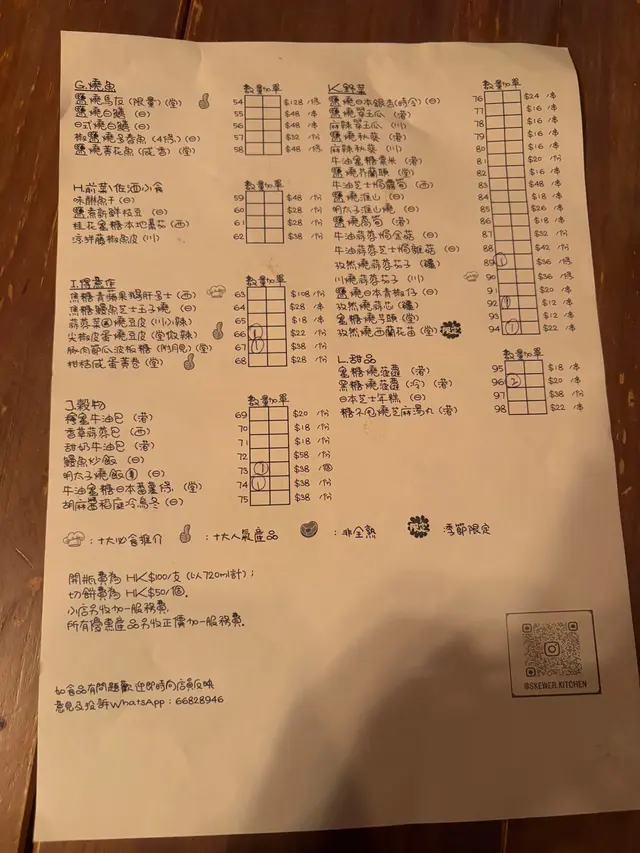 G.燒魚 數量加單
鹽燒馬友(限量)(堂) 54 $128/條
鹽燒白鱔(日) 55 $48/本
日式燒白鱔(日) 56 $48/本
椒鹽燒多春魚(4條)(日) 57 $32/份
鹽燒黃花魚(咸香)(堂) 58 $48/條
H.前菜/佐酒小食 數量加單
味醂魚干(日) 59 $48/份
鹽煮新鮮枝豆(日) 60 $28/份
桂花蜜糖本地番茄(西) 61 $28/份
涼拌藤椒魚皮(川) 62 $38/份
I.得意作 數量加單
焦糖青蘋果鵝肝多士(西) 63 $108/份
焦糖糖衣芝士玉子燒(日) 64 $28/本
蒜蓉菜圃燒豆皮(川小辣) 65 $18/本
尖椒皮蛋燒豆皮(堂微辣) 66 1 $22/本
豚肉節瓜波板糖(附月見)(堂) 67 1 $38/本
柑桔咸蛋黃卷(堂) 68 $28/本
J.穀物 數量加單
櫓蜜牛油包(港) 69 $20/份
香草蒜蓉包(西) 70 $18/份
甜奶牛油包(港) 71 $18/份
鰻魚炒飯(日) 72 $58/份
明太子燒飯團(日) 73 1 $38/個
牛油蜜糖日本番薯條(堂) 74 1 $38/份
胡麻醬稻庭冷烏冬(日) 75 $38/份
K.野菜 數量加單
鹽燒日本銀杏(時令)(日) 76 $24/本
鹽燒翠玉瓜(港) 77 $16/本
麻辣翠玉瓜(川) 78 $16/本
鹽燒秋葵(港) 79 $16/本
麻辣秋葵(川) 80 $16/本
牛油蜜糖粟米(港) 81 $20/份
鹽燒芥蘭頭(堂) 82 $16/本
牛油芝士焗蘿蔔(西) 83 $48/本
鹽燒淮山(日) 84 $18/本
明太子淮山燒(日) 85 $26/本
鹽燒露筍(港) 86 $18/本
牛油蒜蓉焗金菇(日) 87 $32/份
牛油蒜蓉芝士焗雜菇(日) 88 $42/份
孜然燒蒜蓉茄子(疆) 89 1 $36/條
川燒蒜蓉茄子(川) 90 $36/條
鹽燒日本青椒仔(日) 91 $20/份
孜然燒蒜芯(疆) 92 1 $12/本
蜜糖燒芋頭(堂) 93 $12/本
孜然燒西蘭花苗(堂) 94 1 $22/本
L.甜品 數量加單
蜜糖燒菠蘿(港) 95 $18/本
黑糖燒菠蘿(冷)(港) 96 2 $20/本
日本芝士年糕(日) 97 $38/份
糖不甩燒芝麻湯丸(港) 98 $22/本
:十大必食推介 :十大人氣產品 :非全熟 :季節限定
開瓶費為 HK$100/支(以720ml計);
切餅費為 HK$50/個.
小店另收加一服務費.
所有優惠產品另收正價加一服務費.
如食品有問題歡迎即時向店員反映
意見及投訴WhatsApp:66828946
@SKEWER.KITCHEN